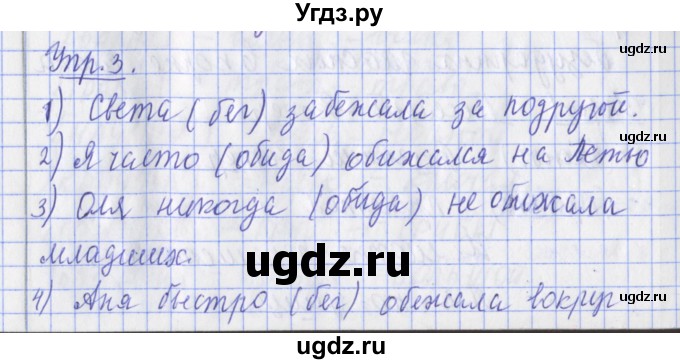 Угдз.ру
Упр.3.
ugdz.ru
1) Света (бег) забежала за подругой.
ugdz.ru
2) Я часто (обида) обижался на Петю
3) Оля никогда (обида) не обижала
ugdz.ru
младших.
ugdz.ru
4) Аня быстро (бег) обежала вокруг
ugdz.ru
ugdz.ru